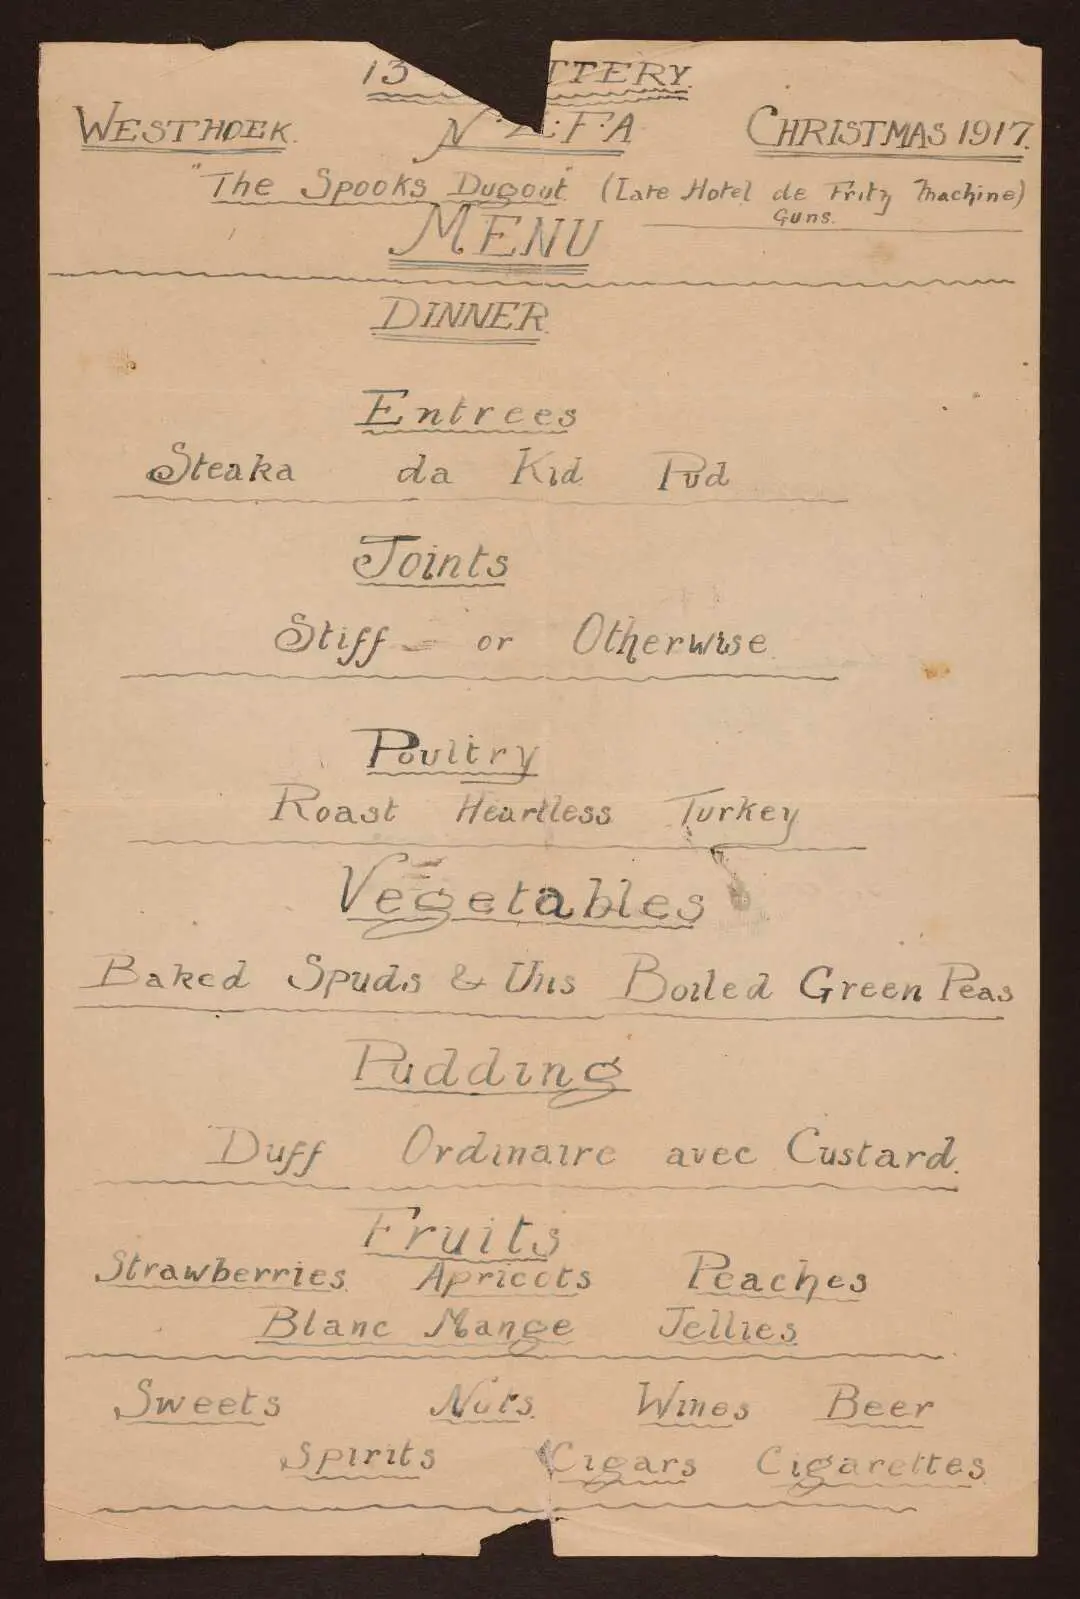 13 TTERY
WESTHOEK. N.Z.F.A CHRISTMAS 1917.
"The Spooks Dugout" (Late Hotel de Fritz Machine)
Guns.
MENU
DINNER.
Entrees
Steaka da Kid Pud
Joints
Stiff - or Otherwise.
Poultry
Roast Heartless Turkey
Vegetables
Baked Spuds & Uns Boiled Green Peas
Pudding
Duff Ordinaire avec Custard.
Fruits
Strawberries Apricots Peaches
Blanc Mange Jellies
Sweets Nuts. Wines Beer
Spirits Cigars Cigarettes